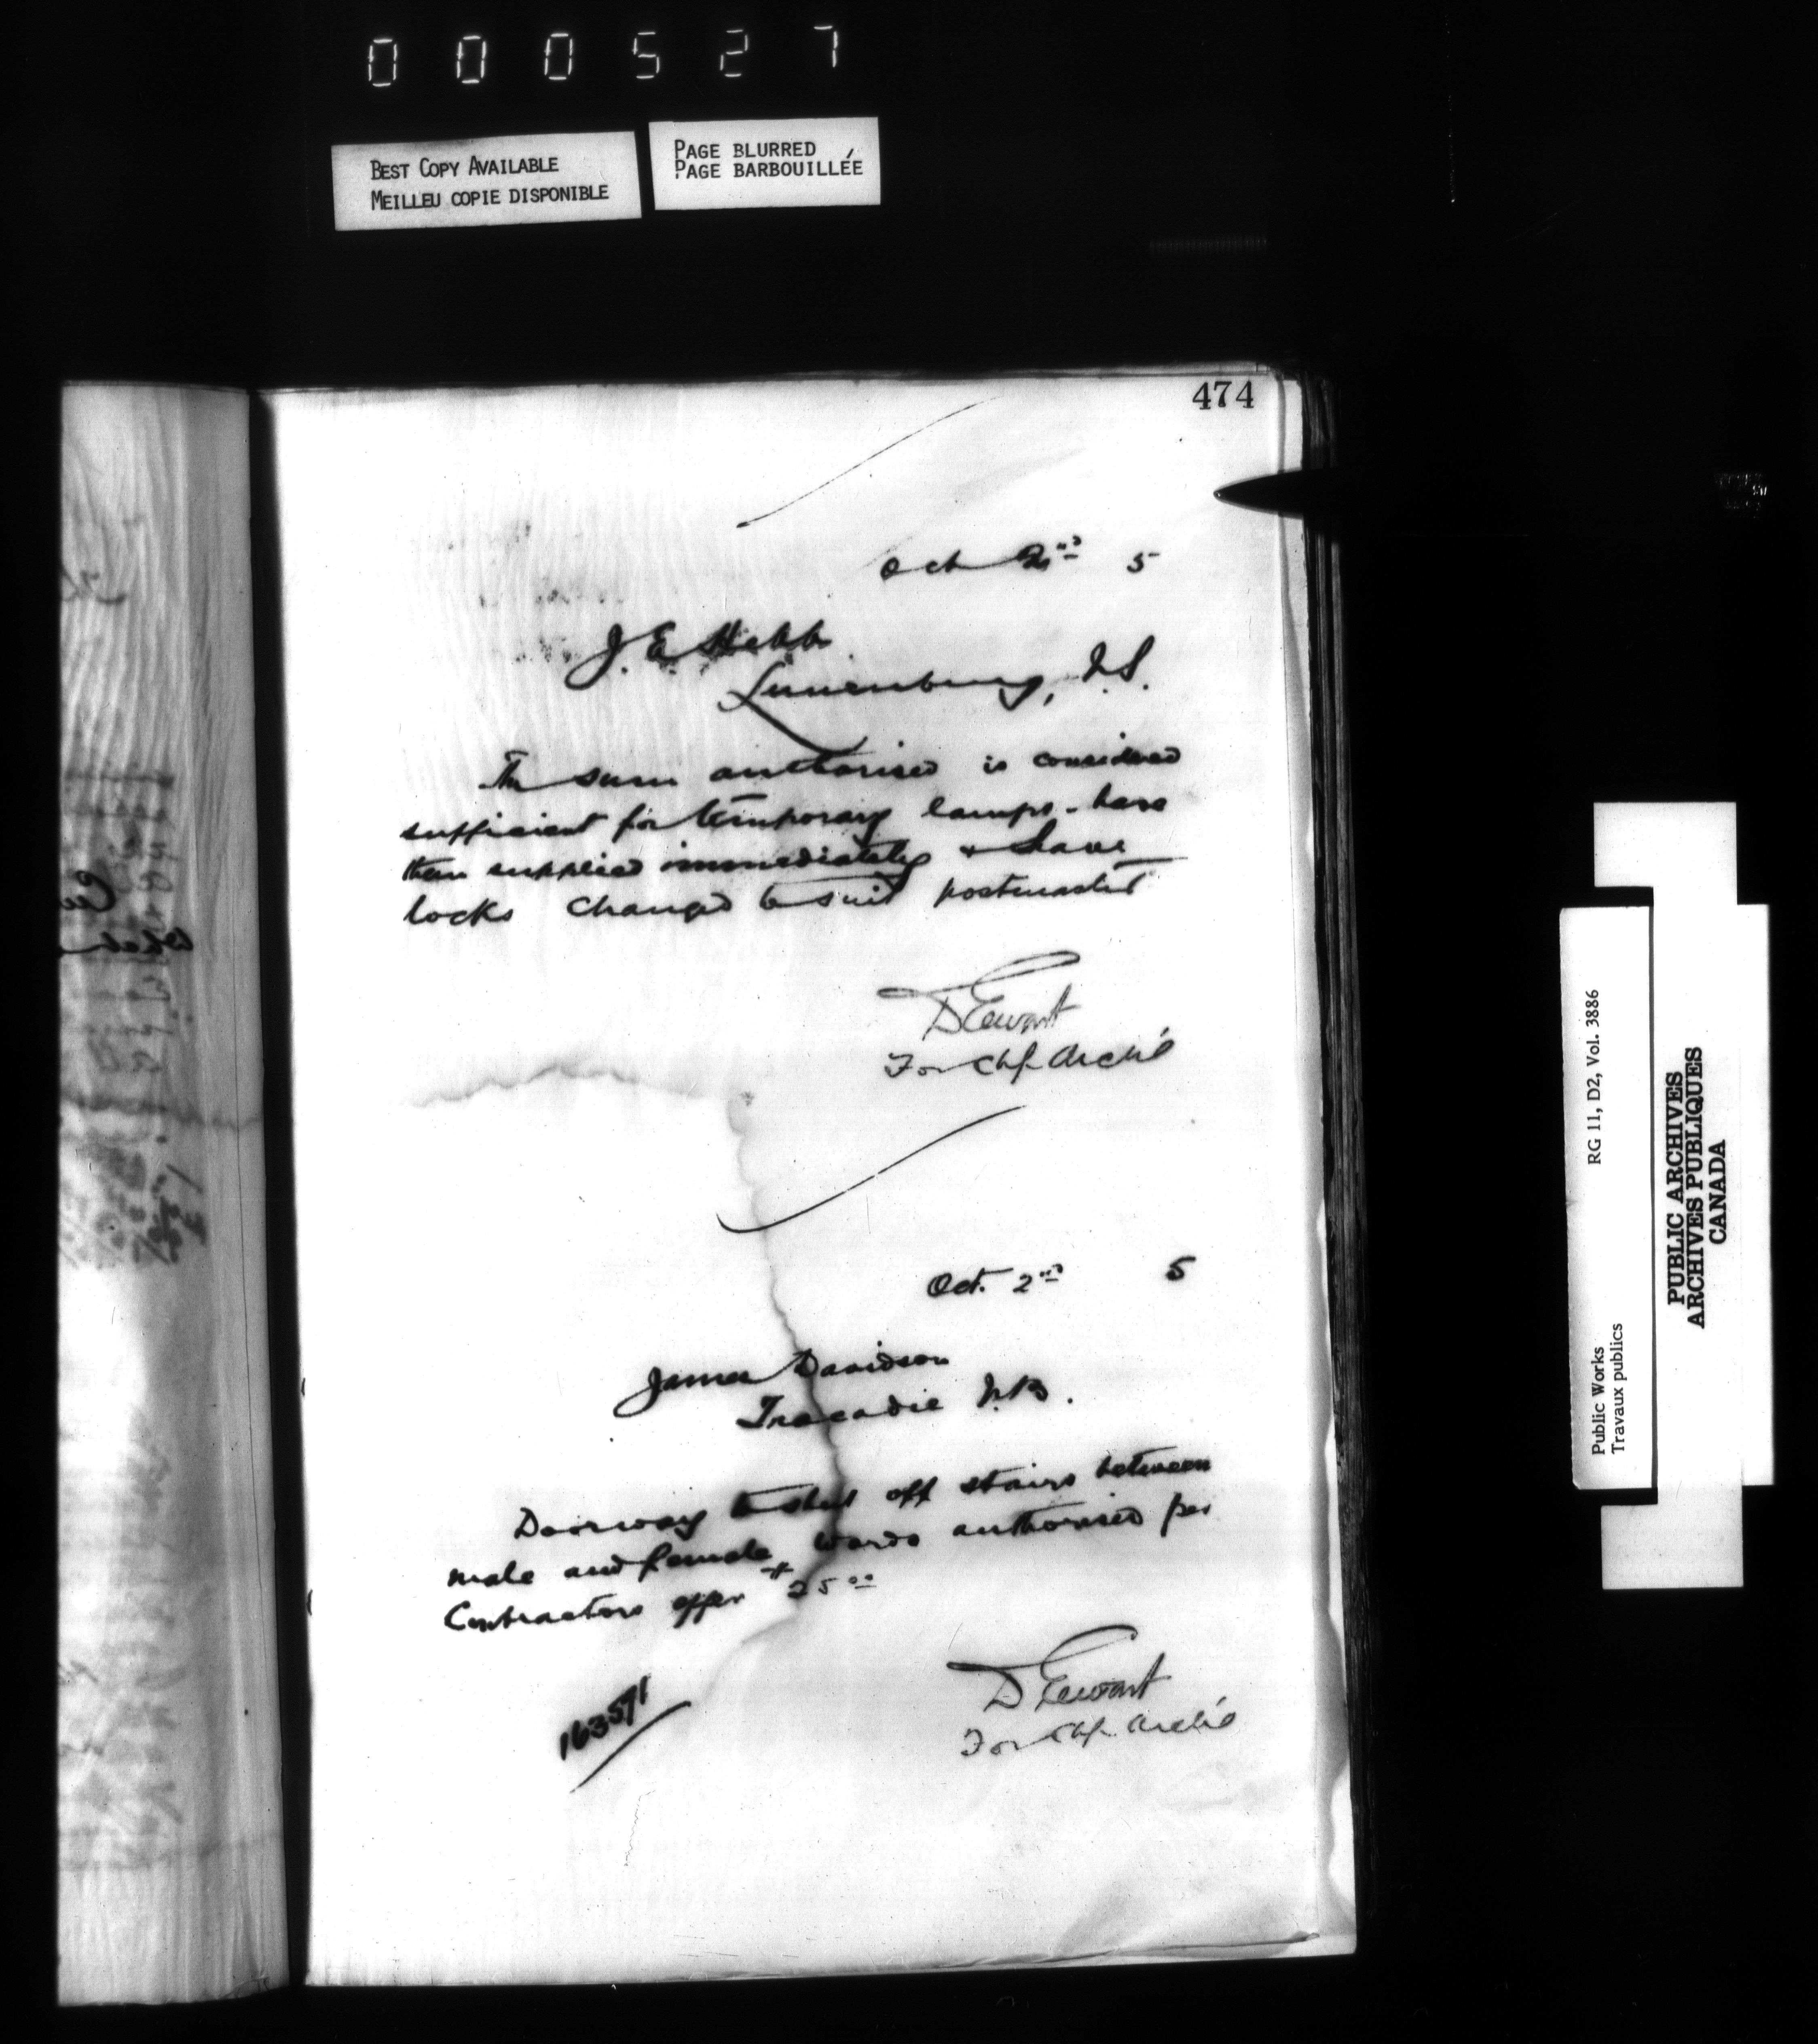 000527
BEST COPY AVAILABLE
MEILLEU COPIE DISPONIBLE
PAGE BLURRED
PAGE BARBOUILLÉE
474
Oct 2nd 5
J. E. Hebb
Lunenburg, N.S.
The sum authorised is considered
sufficient for temporary lamps - have
them supplied immediately & have
locks changed to suit postmaster
D Ewart
For Chf. Archt
Oct. 2nd 5
James Davidson
Tracadie N.B.
Doorway to shut off stairs between
male and female wards authorised per
Contractors offer $25.00
D Ewart
For Chf. Archt
163571
Public Works
Travaux publics
RG 11, D2, Vol. 3886
PUBLIC ARCHIVES
ARCHIVES PUBLIQUES
CANADA